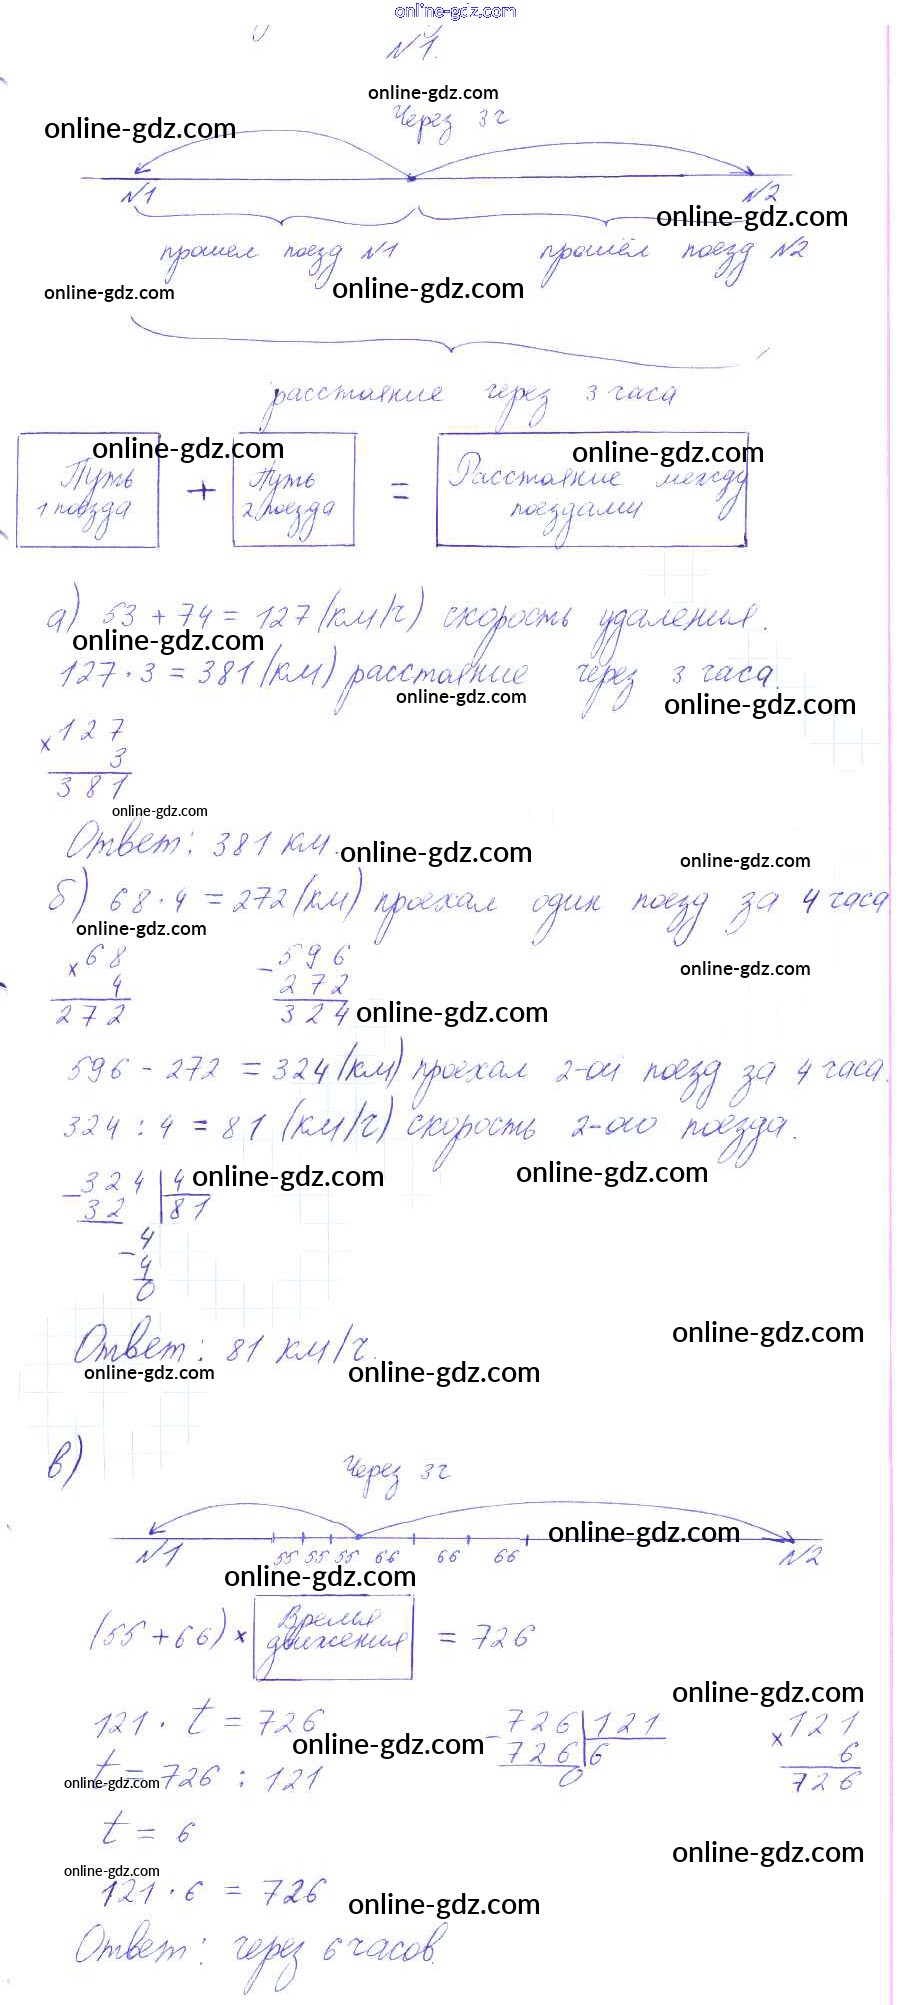 online-gdz.com
№1.
online-gdz.com
Через 3 ч
online-gdz.com
№1 №2
online-gdz.com
прошёл поезд №1 прошёл поезд №2
online-gdz.com online-gdz.com
расстояние через 3 часа
online-gdz.com online-gdz.com
Путь 1 поезда + Путь 2 поезда = Расстояние между поездами
а) 53 + 74 = 127 (км/ч) скорость удаления.
online-gdz.com
127 · 3 = 381 (км) расстояние через 3 часа.
online-gdz.com online-gdz.com
× 127
3
381
online-gdz.com
Ответ: 381 км.
online-gdz.com online-gdz.com
б) 68 · 4 = 272 (км) проехал один поезд за 4 часа
online-gdz.com
× 68 - 596
4 272
272 324
online-gdz.com
online-gdz.com
596 - 272 = 324 (км) проехал 2-ой поезд за 4 часа.
324 : 4 = 81 (км/ч) скорость 2-ого поезда.
online-gdz.com online-gdz.com
- 324 | 4
32 | 81
- 4
4
0
online-gdz.com
Ответ: 81 км/ч.
online-gdz.com online-gdz.com
в)
Через 3 ч
online-gdz.com
№1 55 55 55 66 66 66 №2
online-gdz.com
(55 + 66) × Время движения = 726
online-gdz.com
121 · t = 726 - 726 | 121 × 121
online-gdz.com 726 | 6 6
t = 726 : 121 0 726
online-gdz.com
t = 6
online-gdz.com
online-gdz.com
121 · 6 = 726
online-gdz.com
Ответ: через 6 часов.